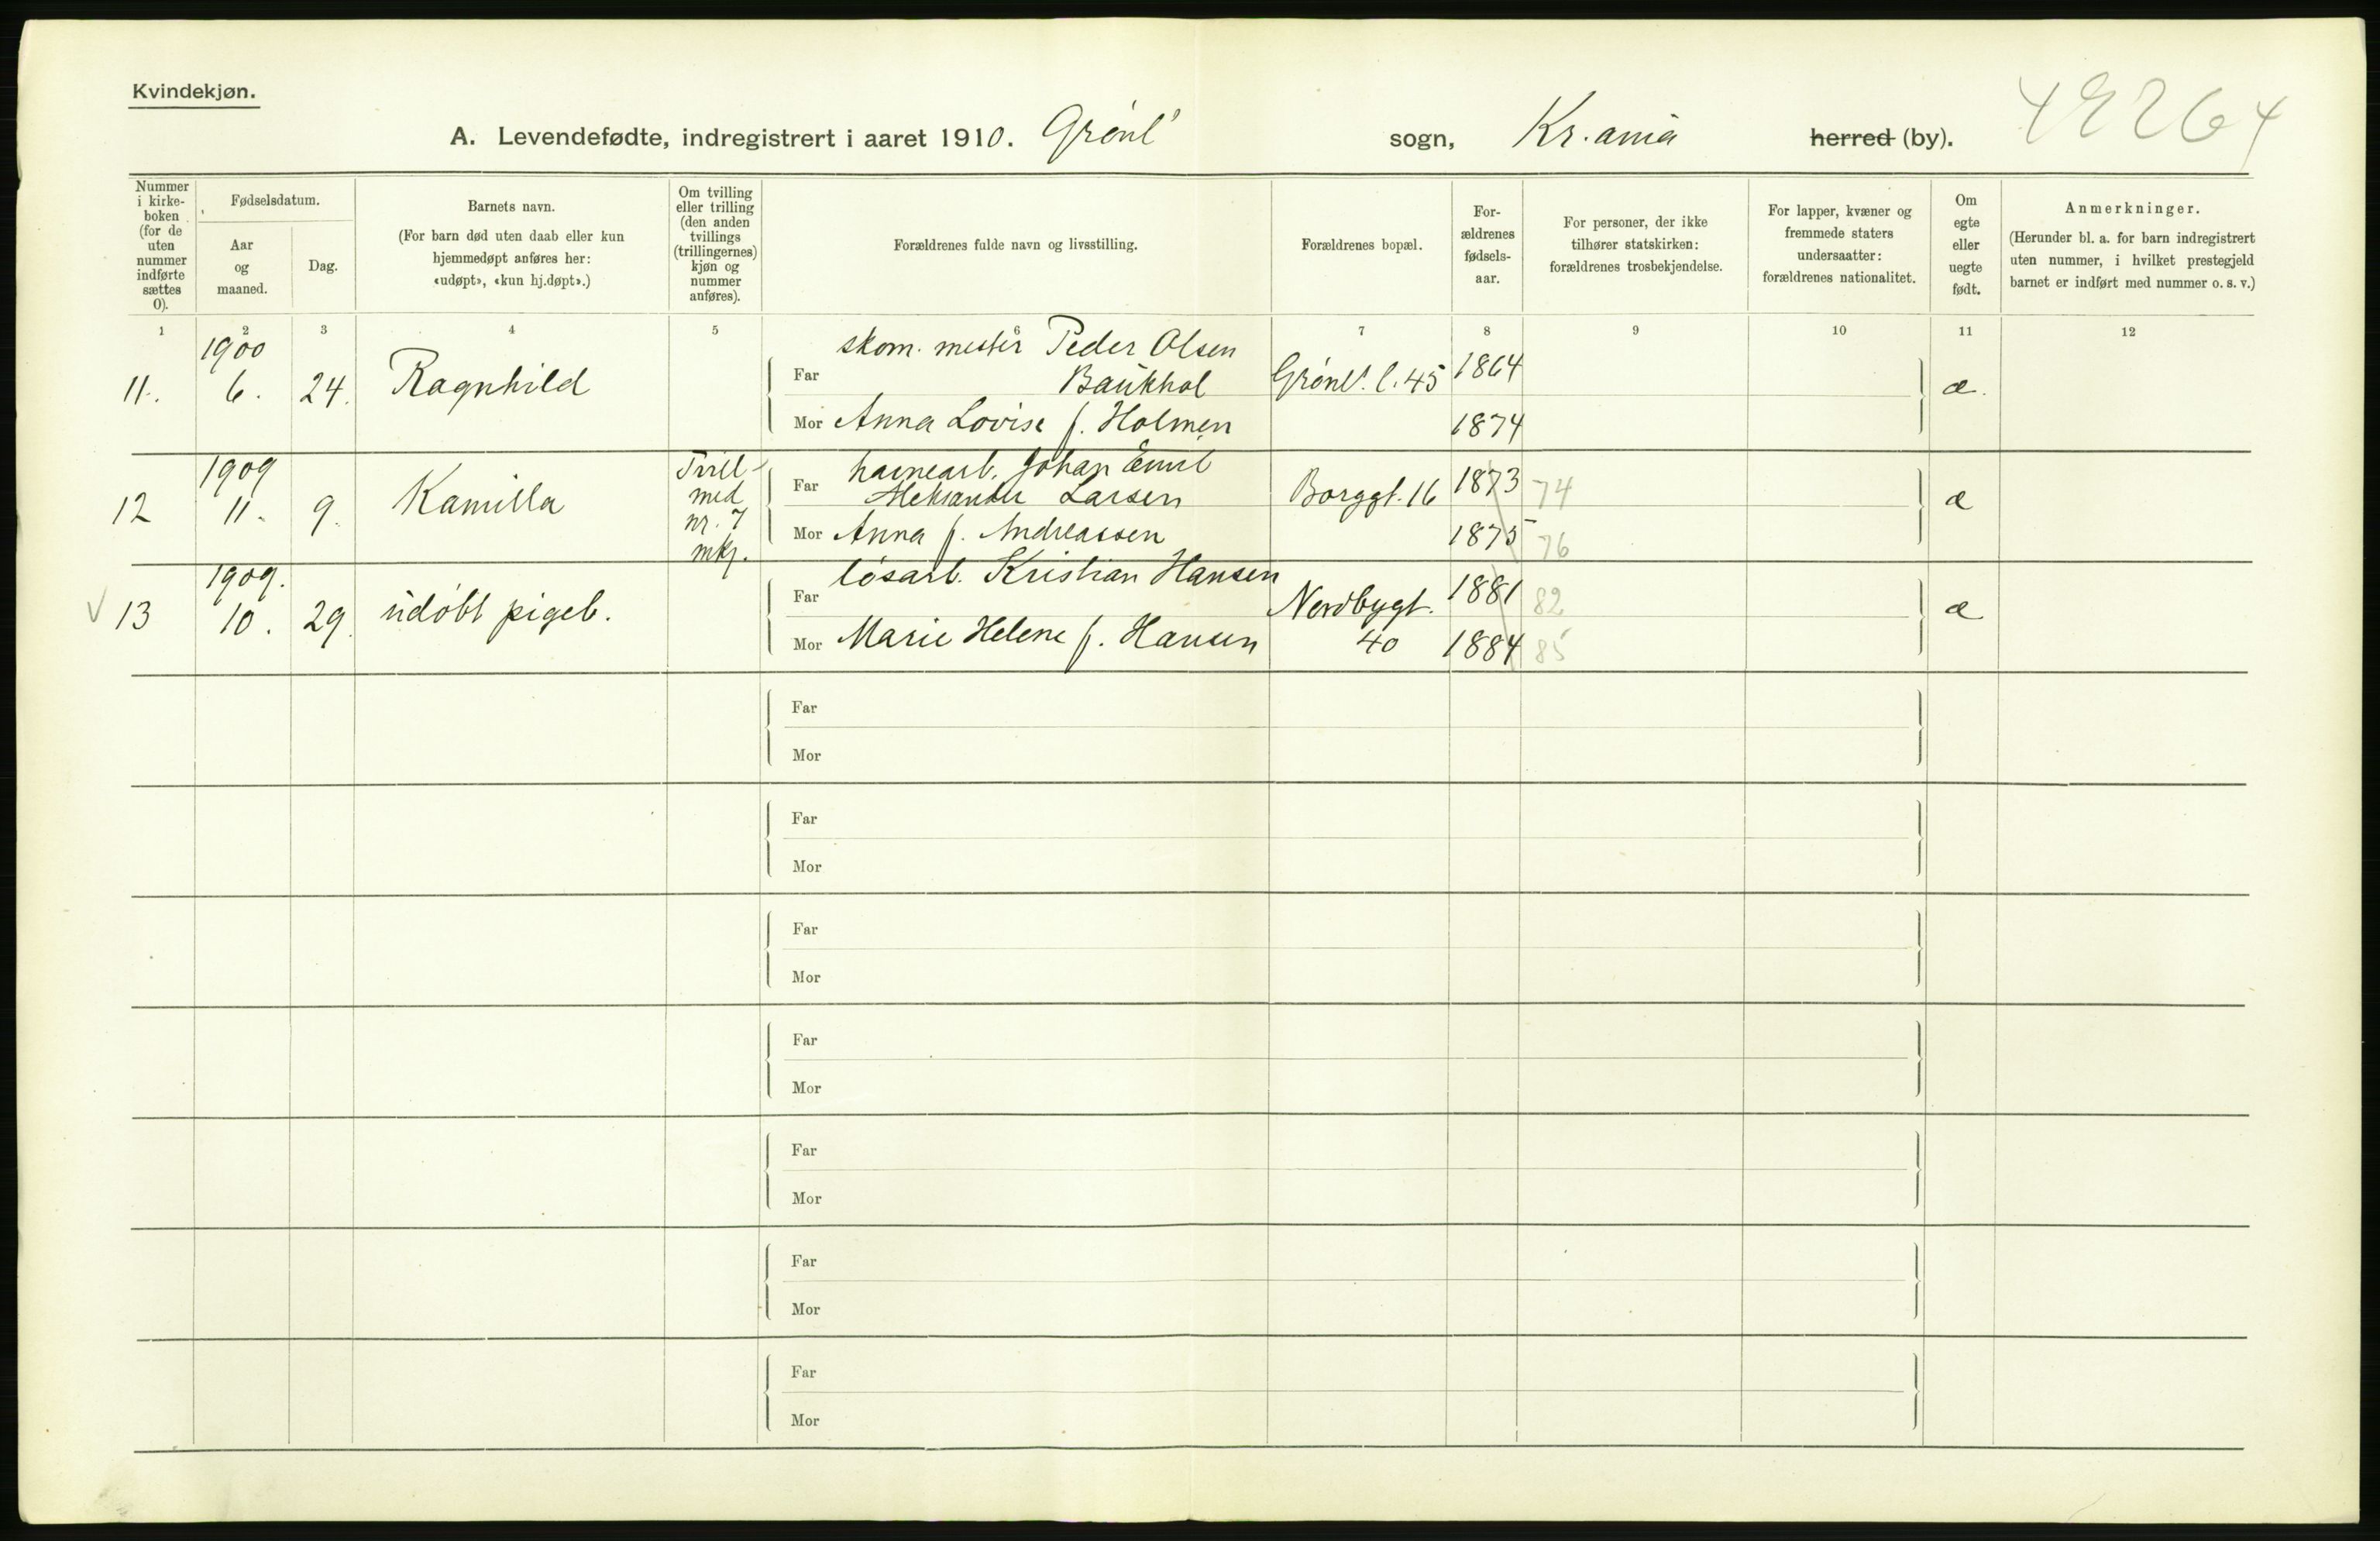 Kvindekjøn.
A. Levendefødte, indregistrert i aaret 1910. Grønl' sogn, Kr.ania herred (by).
Nummer i kirke-boken (for de uten nummer indførte sættes 0).
Fødselsdatum.
Aar og maaned.
Dag.
Barnets navn.
(For barn død uten daab eller kun hjemmedøpt anføres her: «udøpt», «kun hj.døpt».)
Om tvilling eller trilling (den anden tvillings (trillingernes) kjøn og nummer anføres).
Forældrenes fulde navn og livsstilling.
Forældrenes bopæl.
For-ældrenes fødsels-aar.
For personer, der ikke tilhører statskirken: forældrenes trosbekjendelse.
For lapper, kvæner og fremmede staters undersaatter: forældrenes nationalitet.
Om egte eller uegte født.
Anmerkninger.
(Herunder bl. a. for barn indregistrert uten nummer, i hvilket prestegjeld barnet er indført med nummer o. s. v.)
1 2 3 4 5 6 7 8 9 10 11 12
1900 skom. mester Peder Olsen
11. 6. 24. Ragnhild Far Baukhol Grønl. l. 45 1864 æ.
Mor Anna Lovise f. Holmen 1874
1909 Tvill med nr. 7 mkj. havnearb. Johan Emil
12 11. 9. Kamilla Far Aleksander Larsen Borggt. 16 1873 74 æ
Mor Anna f. Andreassen 1875 76
1909. løsarb. Kristian Hansen
V 13 10. 29. udøbt pigeb. Far Nordbygt. 1881 82 æ
Mor Marie Helene f. Hansen 40 1884 85
Far
Mor
Far
Mor
Far
Mor
Far
Mor
Far
Mor
Far
Mor
Far
Mor